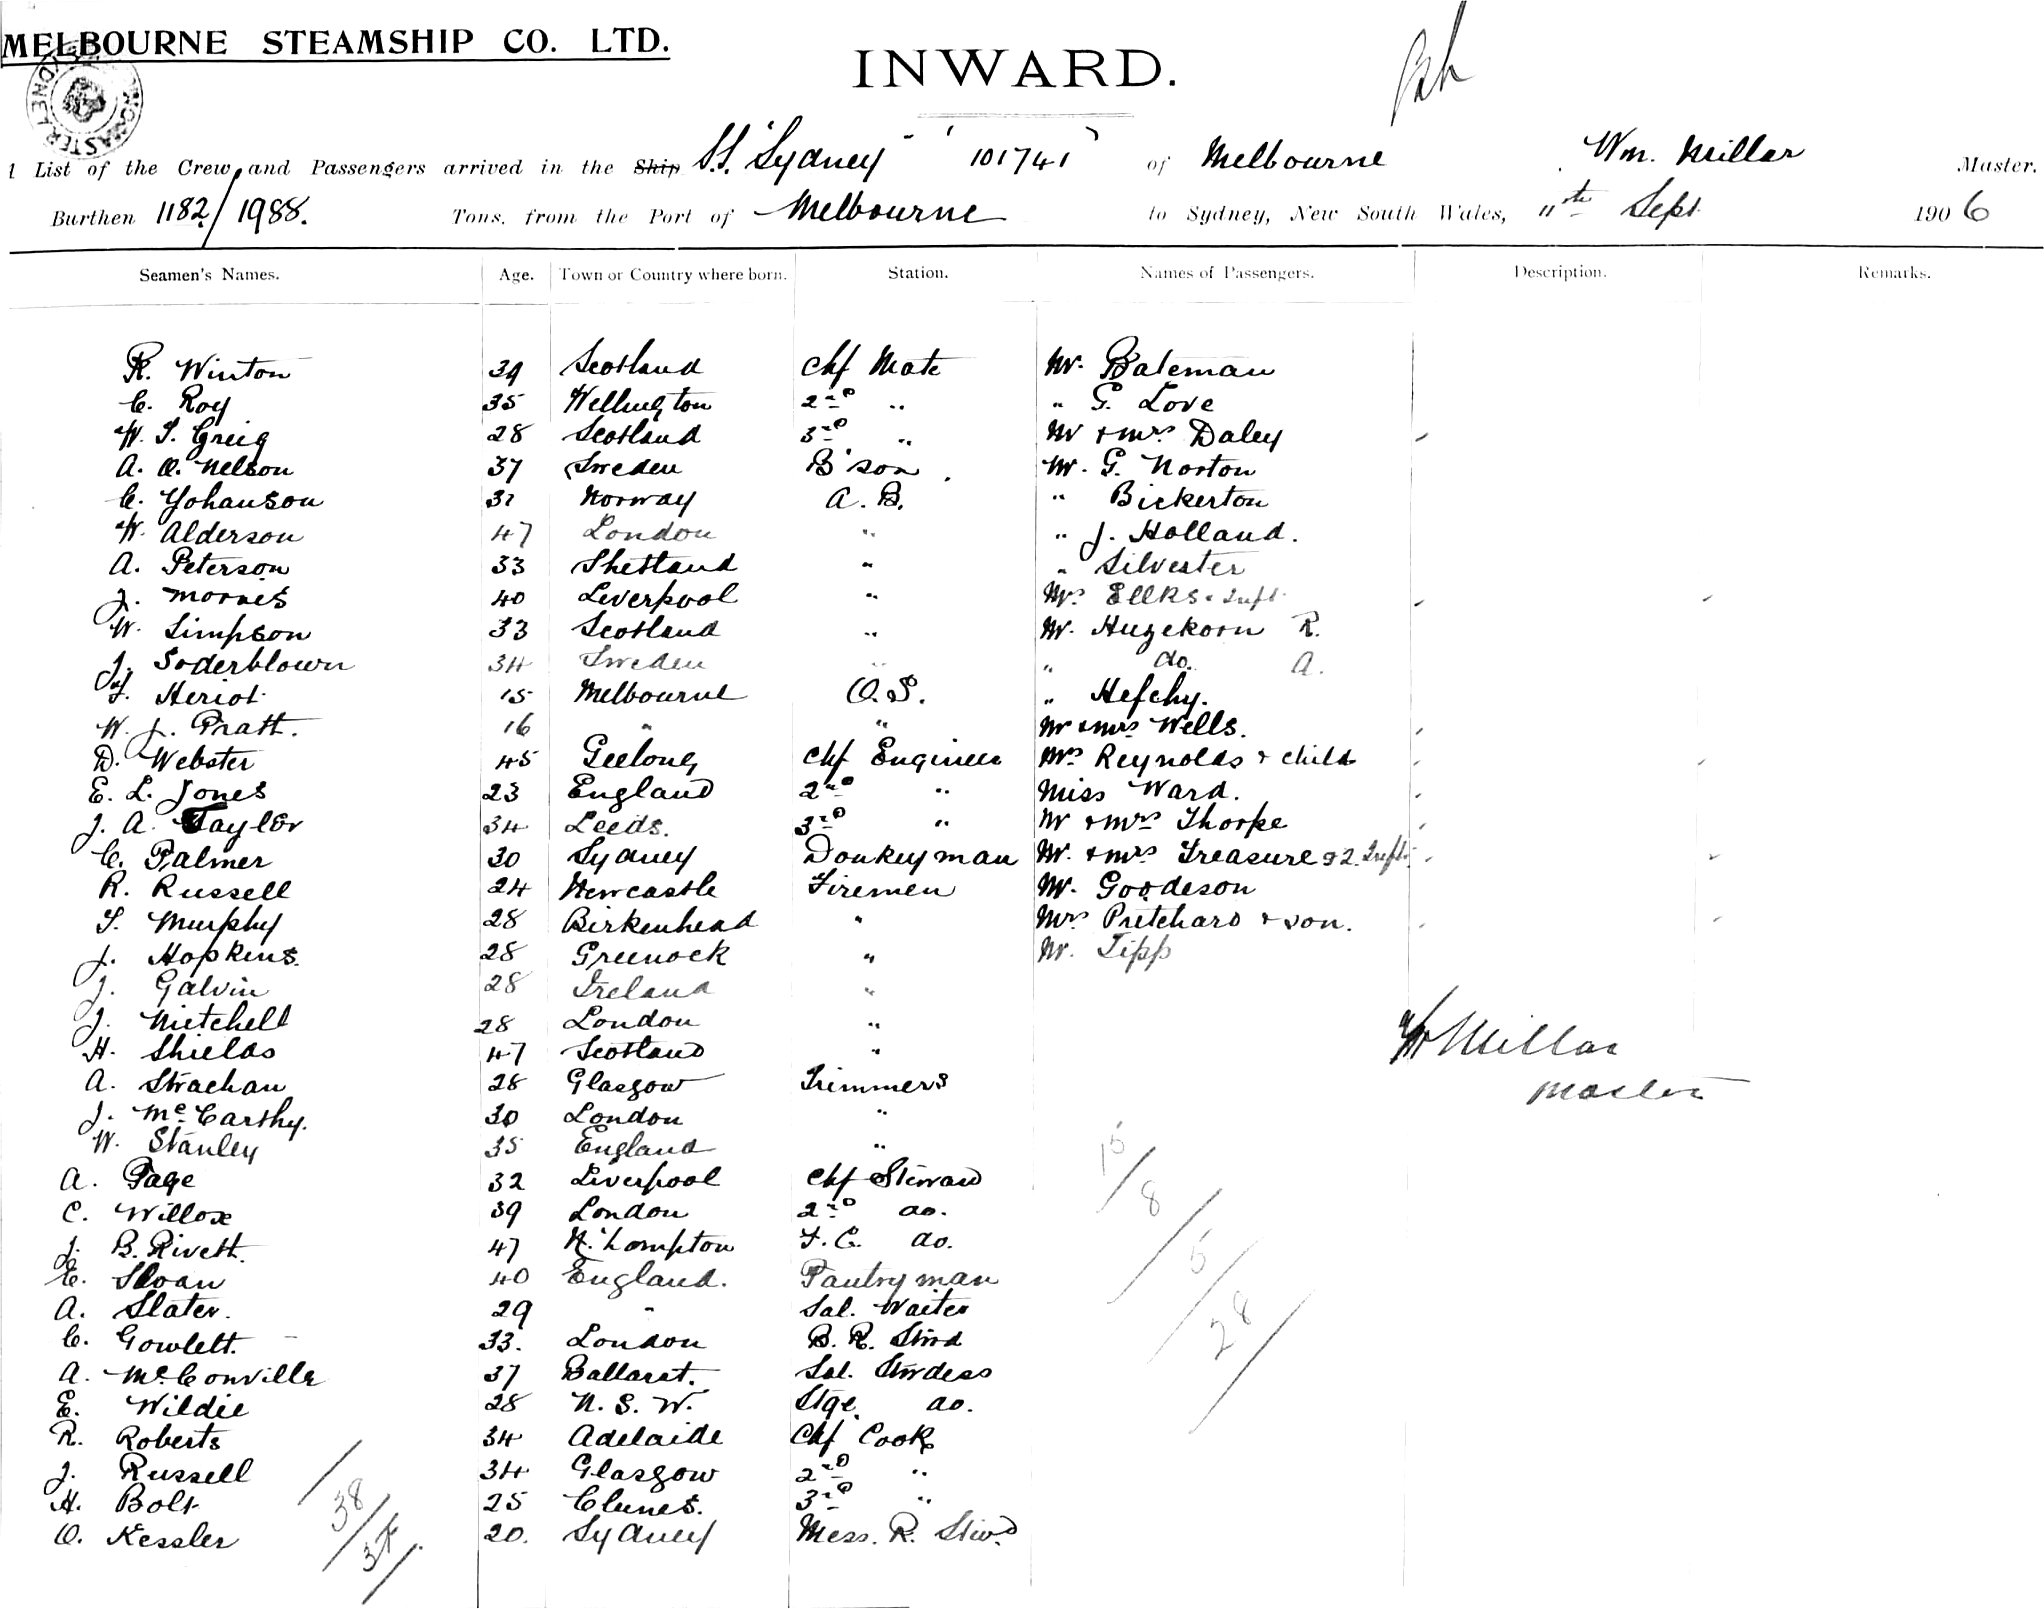 MELBOURNE STEAMSHIP CO. LTD.
INWARD.
A List of the Crew and Passengers arrived in the Ship S.S. "Sydney" (101741) of Melbourne Wm. Millar Master.
Burthen 1182/1988. Tons, from the Port of Melbourne to Sydney, New South Wales, 11th Sept 1906
Seamen's Names. Age. Town or Country where born. Station. Names of Passengers. Description. Remarks.
R. Winton 39 Scotland Chf Mate Mr. Bateman
C. Roy 35 Wellington 2nd " " G. Love
W. S. Greig 28 Scotland 3rd " Mr & Mrs Daley
A. O. Nelson 37 Sweden B'son. Mr. G. Norton
C. Yohanson 31 Norway A. B. " Bickerton
W. Alderson 47 London " " J. Holland.
A. Peterson 33 Shetland " " Silvester
J. Morris 40 Liverpool " Mrs Ellks & Inft.
W. Simpson 33 Scotland " Mr. Hugekorn R.
J. Soderblown 34 Sweden " " do. A.
J. Heriot 15 Melbourne O.S. " Hefchy.
W. J. Pratt. 16 " " Mr & Mrs Wells.
D. Webster 45 Geelong Chf Engineer Mrs Reynolds & child
E. L. Jones 23 England 2nd " Miss Ward.
J. A. Taylor 34 Leeds. 3rd " Mr & Mrs Thorpe
C. Palmer 30 Sydney Donkeyman Mr. & Mrs Treasure & 2 Infts.
R. Russell 24 Newcastle Firemen Mr. Goodeson
S. Murphy 28 Birkenhead " Mrs Pritchard & son.
J. Hopkins. 28 Greenock " Mr. Tipp
J. Galvin 28 Ireland "
J. Mitchell 28 London "
H. Shields 47 Scotland "
Wm Millar
A. Strachan 28 Glasgow Trimmers
Master
J. McCarthy. 30 London "
W. Stanley 35 England "
A. Page 32 Liverpool Chf Steward
C. Willox 39 London 2nd do.
J. B. Rivett. 47 N.'hampton F. C. do.
C. Sloan 40 England. Pantryman
A. Slater. 29 " Sal. Waiter
C. Gowlett. 33. London B. R. Stwd
A. McConville 37 Ballarat. Sal. Stwdess
E. Wildie 28 N. S. W. Stge. do.
R. Roberts 34 Adelaide Chf Cook
J. Russell 34 Glasgow 2nd "
H. Bolt 25 Clunes. 3rd "
O. Kessler 20. Sydney Mess. R. Stwd.
15/8/5/28
38/37